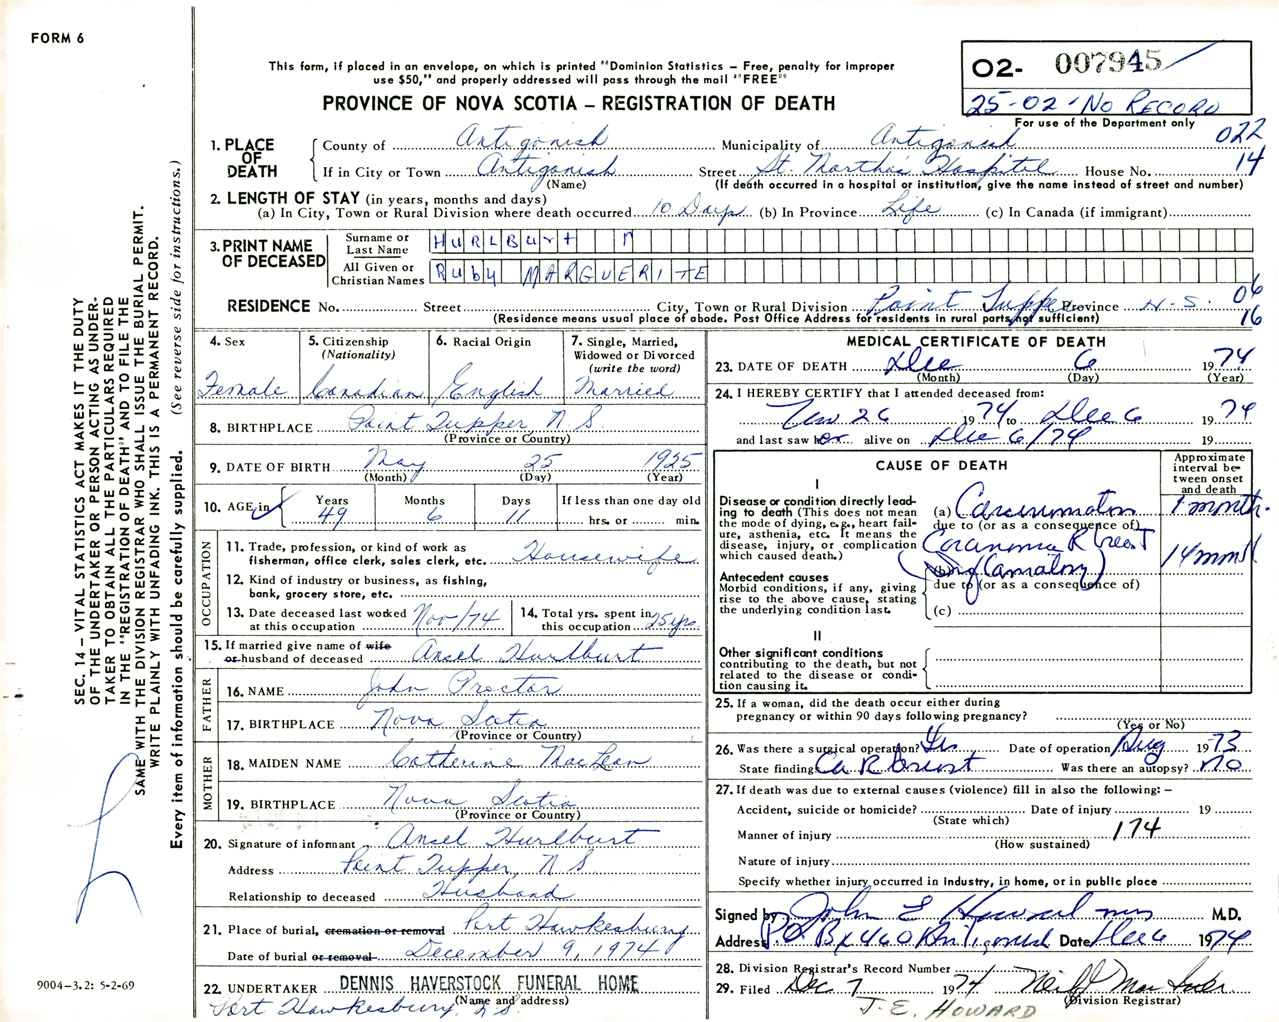 FORM 6
This form, if placed in an envelope, on which is printed "Dominion Statistics – Free, penalty for improper
use $50," and properly addressed will pass through the mail "FREE"
PROVINCE OF NOVA SCOTIA – REGISTRATION OF DEATH
O2- 007945
25-02-NO RECORD
For use of the Department only
022
14
1. PLACE OF DEATH
County of Antigonish Municipality of Antigonish
If in City or Town Antigonish Street St. Martha's Hospital House No.
(Name) (If death occurred in a hospital or institution, give the name instead of street and number)
2. LENGTH OF STAY (in years, months and days)
(a) In City, Town or Rural Division where death occurred 10 Days (b) In Province Life (c) In Canada (if immigrant)
3. PRINT NAME OF DECEASED
Surname or Last Name HURLBurt
All Given or Christian Names Ruby MARGUERITE
RESIDENCE No. Street City, Town or Rural Division Point Tupper Province N.S. 06
(Residence means usual place of abode. Post Office Address for residents in rural parts not sufficient) 16
4. Sex
Female
5. Citizenship
(Nationality)
Canadian
6. Racial Origin
English
7. Single, Married,
Widowed or Divorced
(write the word)
Married
8. BIRTHPLACE Point Tupper, N.S.
(Province or Country)
9. DATE OF BIRTH May 25 1925
(Month) (Day) (Year)
10. AGE in
Years Months Days If less than one day old
49 6 11 hrs. or min.
OCCUPATION
11. Trade, profession, or kind of work as
fisherman, office clerk, sales clerk, etc. Housewife
12. Kind of industry or business, as fishing,
bank, grocery store, etc.
13. Date deceased last worked
at this occupation Nov/74
14. Total yrs. spent in
this occupation 25 yrs.
15. If married give name of wife
or husband of deceased Ansel Hurlburt
FATHER
16. NAME John Proctor
17. BIRTHPLACE Nova Scotia
(Province or Country)
MOTHER
18. MAIDEN NAME Catherine MacLean
19. BIRTHPLACE Nova Scotia
(Province or Country)
20. Signature of informant Ansel Hurlburt
Address Point Tupper, N S
Relationship to deceased Husband
21. Place of burial, cremation or removal Port Hawkesbury
Date of burial or removal December 9, 1974
22. UNDERTAKER DENNIS HAVERSTOCK FUNERAL HOME
(Name and address)
Port Hawkesbury, N.S.
MEDICAL CERTIFICATE OF DEATH
23. DATE OF DEATH Dec 6 1974
(Month) (Day) (Year)
24. I HEREBY CERTIFY that I attended deceased from:
Nov 26 1974 to Dec 6 1974
and last saw her alive on Dec 6/74 19
CAUSE OF DEATH
Approximate
interval be-
tween onset
and death
I
Disease or condition directly lead-
ing to death (This does not mean
the mode of dying, e.g., heart fail-
ure, asthenia, etc. It means the
disease, injury, or complication
which caused death.)
(a) Carcinomatosis 1 month.
due to (or as a consequence of)
Carcinoma R breast 14 months
(b) (Inflammatory)
due to (or as a consequence of)
(c)
Antecedent causes
Morbid conditions, if any, giving
rise to the above cause, stating
the underlying condition last.
II
Other significant conditions
contributing to the death, but not
related to the disease or condi-
tion causing it.
25. If a woman, did the death occur either during
pregnancy or within 90 days following pregnancy?
(Yes or No)
26. Was there a surgical operation? Yes Date of operation Aug 1973
State finding Ca R breast Was there an autopsy? NO
27. If death was due to external causes (violence) fill in also the following: –
Accident, suicide or homicide? Date of injury 19
(State which)
Manner of injury 174
(How sustained)
Nature of injury
Specify whether injury occurred in industry, in home, or in public place
Signed by John E Howard M.D.
Address P.O. Bx 460 Antigonish Date Dec 6 1974
28. Division Registrar's Record Number
29. Filed Dec 7 1974
(Division Registrar)
J.E. HOWARD
SEC. 14 – VITAL STATISTICS ACT MAKES IT THE DUTY
OF THE UNDERTAKER OR PERSON ACTING AS UNDER-
TAKER TO OBTAIN ALL THE PARTICULARS REQUIRED
IN THE "REGISTRATION OF DEATH" AND TO FILE THE
SAME WITH THE DIVISION REGISTRAR WHO SHALL ISSUE THE BURIAL PERMIT.
WRITE PLAINLY WITH UNFADING INK. THIS IS A PERMANENT RECORD.
Every item of information should be carefully supplied. (See reverse side for instructions.)
9004-3.2: 5-2-69